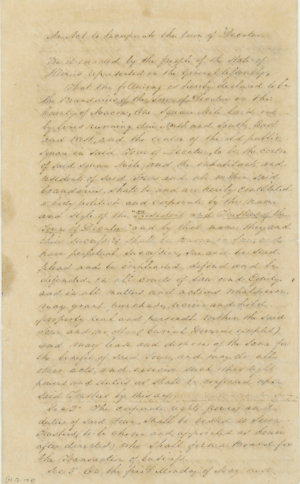 An Act to incorporate the town of Decatur
Be it enacted by the people of the State of
Illinois, represented in the General Assembly,
That the following is hereby declared to be
the Boundaries of the Town of Decatur in the
County of Macon, One Square Mile laid out
by lines running due North and South, East
and West, and the center of the old public
square in said Town of Decatur, to be the center
of said square Mile, and the inhabitants and
resident of said Town and all within said
boundaries, shall be and are hereby constituted
a body politic and corporate by the name
and style of the President and Trustees of the
Town of Decatur and by that name they and
their successors shall be known in law, and
have perpetual succession, sue and be sued,
plead and be impleaded, defend and be
defended, in all Courts of Law and Equity,
and in all matters and actions whatsoever,
may grant, purchase, receive and hold
property, real and personal within the said
Town, and no other, (burial grounds excepted)
and may lease and dispose of the same for
the benefit of said Town, and may do all
other acts, and exercise such other
powers and duties as shall be
said Trustees by this act
Sec. 2 The corporate powers and
duties of said Town, shall be vested in
Trustees, to be chosen and appointed as herein
after directed, who shall form a Board for
the Transaction of business
Sec. 3 On the first Monday of